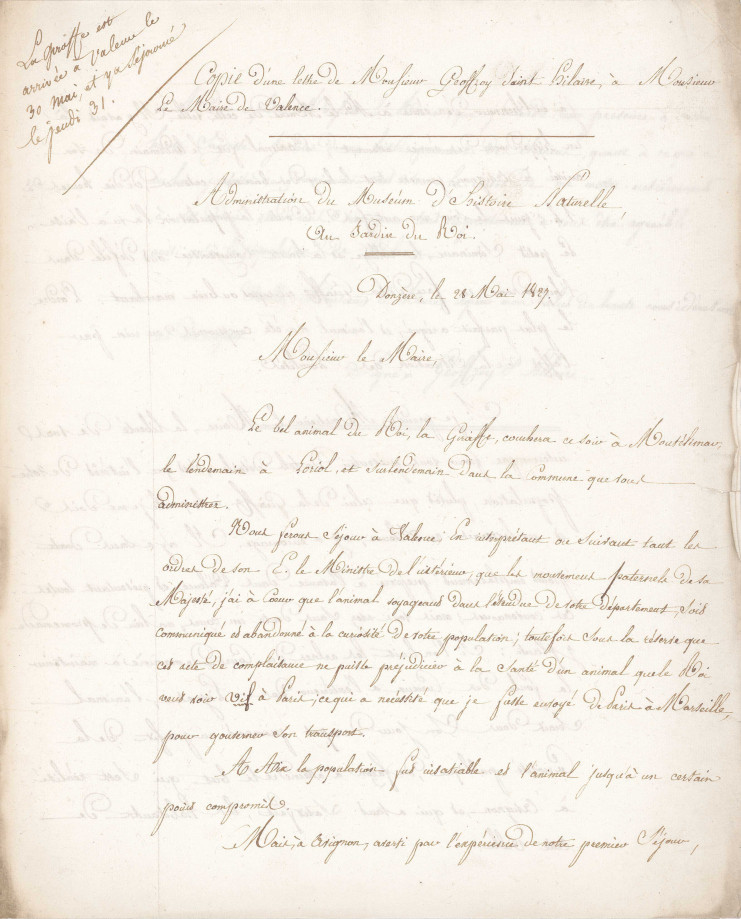 La giraffe est
arrivée à Valence le
30 mai, et y a Séjourné
le jeudi 31.
Copie d'une lettre de Monsieur Geoffroy Saint hilaire, à Monsieur
Le Maire de Valence.
Administration du Muséum d'histoire Naturelle,
Au Jardin du Roi.
Donzère, le 28 Mai 1827.
Monsieur le Maire,
Le bel animal du Roi, la Giraffe, couchera ce soir à Montélimar,
le lendemain à Loriol, et surlendemain dans la commune que vous
administrez.
Nous ferons Séjour à Valence. En interprétant ou suivant tant les
ordres de son E. le Ministre de l'intérieur, que les mouvemens paternels de sa
Majesté, j'ai à Coeur que l'animal voyageant dans l'étendue de votre département, Soit
communiqué et abandonné à la curiosité de votre population; toutefois sous la réserve que
cet acte de complaisance ne puisse préjudicier à la Santé d'un animal que le Roi
veut voir vif à Paris; ce qui a nécessité que je fusse envoyé de Paris à Marseille,
pour gouverner son transport.
A Aix la population fut insatiable et l'animal jusqu'à un certain
point compromis.
Mais, à Avignon, averti par l'expérience de notre premier Séjour,